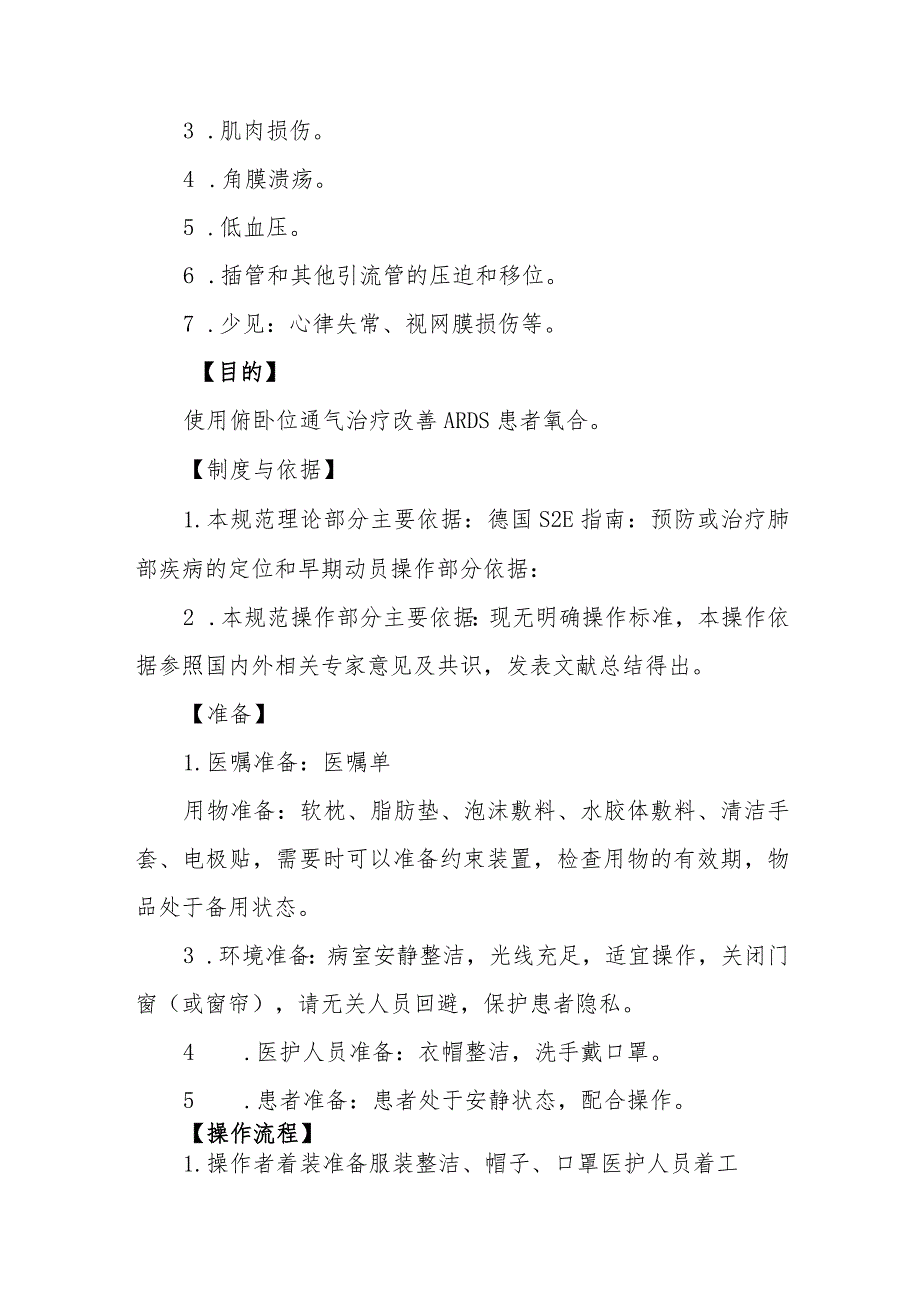 3 .肌肉损伤。
4 .角膜溃疡。
5 .低血压。
6 .插管和其他引流管的压迫和移位。
7 .少见：心律失常、视网膜损伤等。
【目的】
使用俯卧位通气治疗改善ARDS患者氧合。
【制度与依据】
1.本规范理论部分主要依据：德国S2E指南：预防或治疗肺
部疾病的定位和早期动员操作部分依据：
2 .本规范操作部分主要依据:现无明确操作标准，本操作依
据参照国内外相关专家意见及共识，发表文献总结得出。
【准备】
1.医嘱准备：医嘱单
用物准备：软枕、脂肪垫、泡沫敷料、水胶体敷料、清洁手
套、电极贴，需要时可以准备约束装置，检查用物的有效期，物
品处于备用状态。
3 .环境准备:病室安静整洁，光线充足，适宜操作，关闭门
窗（或窗帘），请无关人员回避，保护患者隐私。
4 .医护人员准备：衣帽整洁，洗手戴口罩。
5 .患者准备：患者处于安静状态，配合操作。
【操作流程】
1.操作者着装准备服装整洁、帽子、口罩医护人员着工